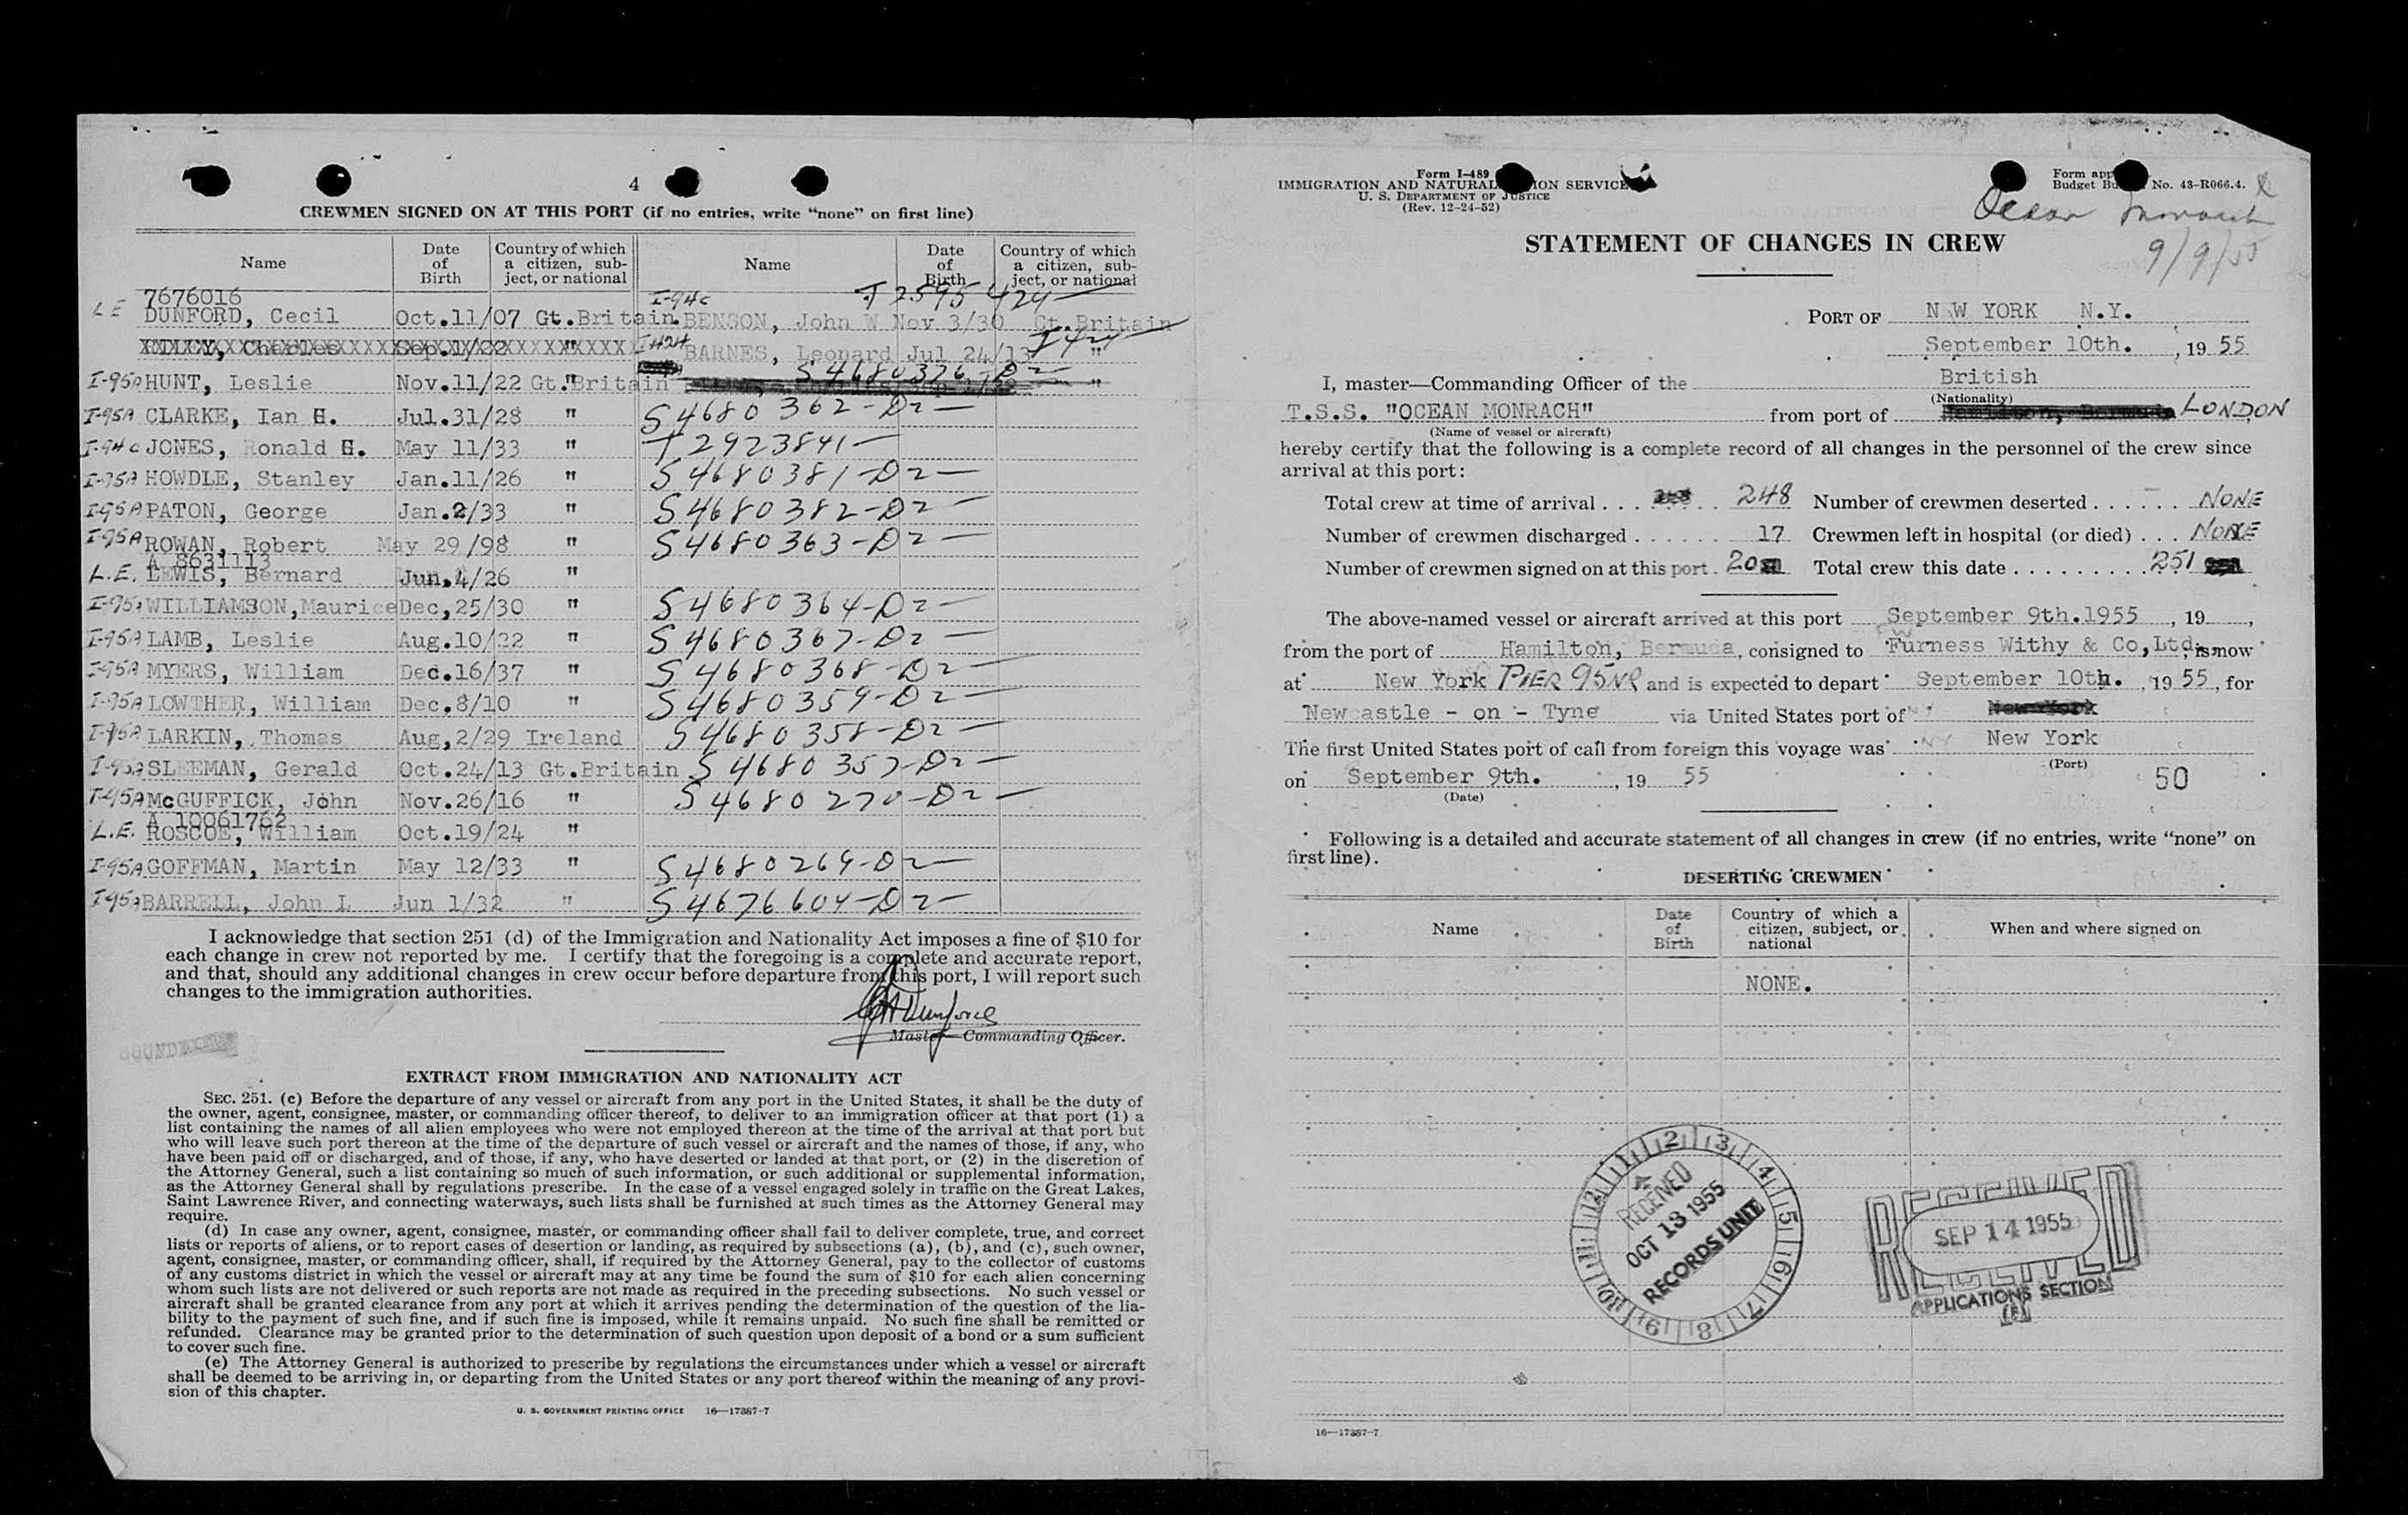 4
CREWMEN SIGNED ON AT THIS PORT (if no entries, write “none” on first line)
Name Date of Birth Country of which a citizen, subject, or national Name Date of Birth Country of which a citizen, subject, or national
7676016 I-94c T 2595424
LE DUNFORD, Cecil Oct.11/07 Gt.Britain. BENSON, John W Nov 3/30 Gt.Britain
Charles Sep.1/22 " BARNES, Leonard Jul 24/13 "
I-95A HUNT, Leslie Nov.11/22 Gt.Britain S4680376-D2 "
I-95A CLARKE, Ian Jul.31/28 " S4680362-D2
I-94c JONES, Ronald May 11/33 " T2923841
I-95A HOWDLE, Stanley Jan.11/26 " S4680381-D2
I-95A PATON, George Jan.2/33 " S4680382-D2
I-95A ROWAN, Robert May 29/98 " S4680363-D2
A 8631113
L.E. LEWIS, Bernard Jun.4/26 "
I-95A WILLIAMSON,Maurice Dec,25/30 " S4680364-D2
I-95A LAMB, Leslie Aug.10/22 " S4680367-D2
I-95A MYERS, William Dec.16/37 " S4680368-D2
I-95A LOWTHER, William Dec.8/10 " S4680359-D2
I-95A LARKIN, Thomas Aug,2/29 Ireland S4680358-D2
I-95A SLEEMAN, Gerald Oct.24/13 Gt.Britain S4680357-D2
I-95A McGUFFICK, John Nov.26/16 " S4680270-D2
A 10061762
L.E. ROSCOE, William Oct.19/24 "
I-95A GOFFMAN, Martin May 12/33 " S4680269-D2
I-95A BARRELL, John L Jun 1/32 " S4676604-D2
I acknowledge that section 251 (d) of the Immigration and Nationality Act imposes a fine of $10 for
each change in crew not reported by me. I certify that the foregoing is a complete and accurate report,
and that, should any additional changes in crew occur before departure from this port, I will report such
changes to the immigration authorities.
Master—Commanding Officer.
EXTRACT FROM IMMIGRATION AND NATIONALITY ACT
SEC. 251. (c) Before the departure of any vessel or aircraft from any port in the United States, it shall be the duty of
the owner, agent, consignee, master, or commanding officer thereof, to deliver to an immigration officer at that port (1) a
list containing the names of all alien employees who were not employed thereon at the time of the arrival at that port but
who will leave such port thereon at the time of the departure of such vessel or aircraft and the names of those, if any, who
have been paid off or discharged, and of those, if any, who have deserted or landed at that port, or (2) in the discretion of
the Attorney General, such a list containing so much of such information, or such additional or supplemental information,
as the Attorney General shall by regulations prescribe. In the case of a vessel engaged solely in traffic on the Great Lakes,
Saint Lawrence River, and connecting waterways, such lists shall be furnished at such times as the Attorney General may
require.
(d) In case any owner, agent, consignee, master, or commanding officer shall fail to deliver complete, true, and correct
lists or reports of aliens, or to report cases of desertion or landing, as required by subsections (a), (b), and (c), such owner,
agent, consignee, master, or commanding officer, shall, if required by the Attorney General, pay to the collector of customs
of any customs district in which the vessel or aircraft may at any time be found the sum of $10 for each alien concerning
whom such lists are not delivered or such reports are not made as required in the preceding subsections. No such vessel or
aircraft shall be granted clearance from any port at which it arrives pending the determination of the question of the lia-
bility to the payment of such fine, and if such fine is imposed, while it remains unpaid. No such fine shall be remitted or
refunded. Clearance may be granted prior to the determination of such question upon deposit of a bond or a sum sufficient
to cover such fine.
(e) The Attorney General is authorized to prescribe by regulations the circumstances under which a vessel or aircraft
shall be deemed to be arriving in, or departing from the United States or any port thereof within the meaning of any provi-
sion of this chapter.
U. S. GOVERNMENT PRINTING OFFICE 16—17387-7
Form I-489
IMMIGRATION AND NATURAL ION SERVICE
U. S. DEPARTMENT OF JUSTICE
(Rev. 12-24-52)
Form app
Budget Bu No. 43-R066.4.
Ocean Monarch
9/9/55
STATEMENT OF CHANGES IN CREW
PORT OF NEW YORK N.Y.
September 10th. , 19 55
I, master—Commanding Officer of the British
(Nationality)
T.S.S. "OCEAN MONRACH" from port of Hamilton, Bermuda LONDON
(Name of vessel or aircraft)
hereby certify that the following is a complete record of all changes in the personnel of the crew since
arrival at this port:
Total crew at time of arrival . . . . 248 Number of crewmen deserted . . . . . . NONE
Number of crewmen discharged . . . . . . . 17 Crewmen left in hospital (or died) . . . NONE
Number of crewmen signed on at this port . 20 Total crew this date . . . . . . . . . 251
The above-named vessel or aircraft arrived at this port September 9th.1955 , 19 ,
from the port of Hamilton, Bermuda, consigned to Furness Withy & Co,Ltd., is now
at New York PIER 95NR and is expected to depart September 10th. , 19 55, for
Newcastle - on - Tyne via United States port of NY New York
The first United States port of call from foreign this voyage was NY New York
(Port)
on September 9th. , 19 55
(Date)
50
Following is a detailed and accurate statement of all changes in crew (if no entries, write “none” on
first line).
DESERTING CREWMEN
Name Date of Birth Country of which a citizen, subject, or national When and where signed on
NONE.
12 1 2 3 4 5 6 7 8 9 10 11
RECEIVED
OCT 13 1955
RECORDS UNIT
RECEIVED
SEP 14 1955
APPLICATIONS SECTION
16—17387-7